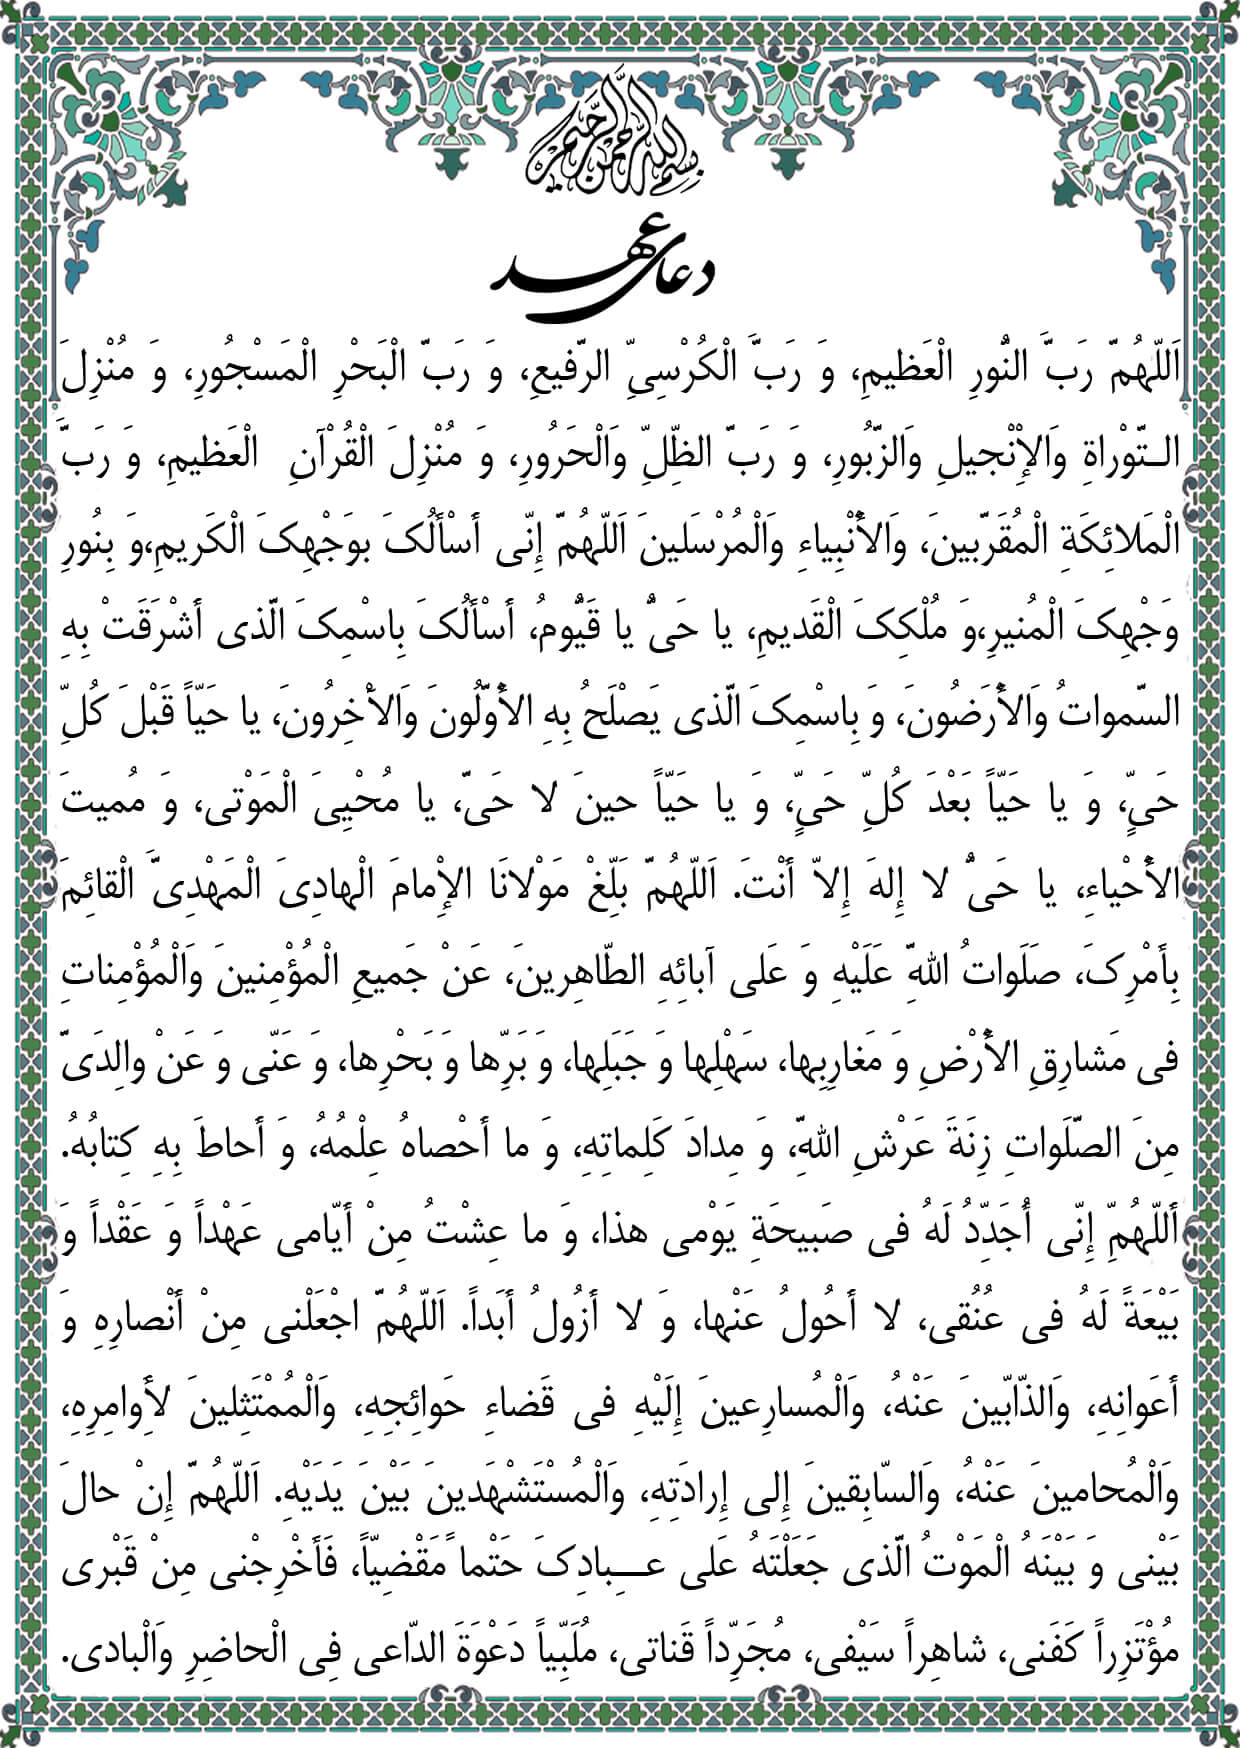 بسم الله الرحمن الرحیم
دعای عهد
اَللّهُمّ رَبَّ النُّورِ الْعَظیمِ، وَ رَبَّ الْکُرْسِیِّ الرّفیعِ، وَ رَبّ الْبَحْرِ الْمَسْجُورِ، وَ مُنْزِلَ
التّوْراةِ وَالاِْنْجیلِ وَالزّبُورِ، وَ رَبّ الظِّلِّ وَالْحَرُورِ، وَ مُنْزِلَ الْقُرْآنِ الْعَظیمِ، وَ رَبَّ
الْمَلائِکَةِ الْمُقَرّبینَ، وَالأَنْبِیاءِ وَالْمُرْسَلینَ اَللّهُمّ إِنّی أسْأَلُکَ بوَجْهِکَ الْکَریمِ،وَ بِنُورِ
وَجْهِکَ الْمُنیرِ،وَ مُلْکِکَ الْقَدیمِ، یا حَیُّ یا قَیُّومُ، أسْأَلُکَ بِاسْمِکَ الّذی أشْرَقَتْ بِهِ
السّمواتُ وَالأَرَضُونَ، وَ بِاسْمِکَ الّذی یَصْلَحُ بِهِ الأَوّلُونَ وَالأَخِرُونَ، یا حَیّاً قَبْلَ کُلِّ
حَیٍّ، وَ یا حَیّاً بَعْدَ کُلِّ حَیٍّ، وَ یا حَیّاً حینَ لا حَیّ، یا مُحْیِیَ الْمَوْتی، وَ مُمیتَ
الأَحْیاءِ، یا حَیُّ لا إِلهَ إِلاّ أنْتَ. اَللّهُمّ بَلِّغْ مَوْلانَا الإِمامَ الْهادِیَ الْمَهْدِیَّ الْقائِمَ
بِأَمْرِکَ، صلَواتُ اللهِّ عَلَیْهِ وَ عَلی آبائِهِ الطّاهِرینَ، عَنْ جَمیعِ الْمُؤْمِنینَ وَالْمُؤْمِناتِ
فی مَشارِقِ الأَرْضِ وَ مَغارِبِها، سَهْلِها وَ جَبَلِها، وَ بَرِّها وَ بَحْرِها، وَ عَنّی وَ عَنْ والِدَیّ
مِنَ الصّلَواتِ زِنَةَ عَرْشِ اللهِّ، وَ مِدادَ کَلِماتِهِ، وَ ما أحْصاهُ عِلْمُهُ، وَ أحاطَ بِهِ کِتابُهُ.
أللّهُمِّ إِنّی أُجَدِّدُ لَهُ فی صَبیحَةِ یَوْمی هذا، وَ ما عِشْتُ مِنْ أیّامی عَهْداً وَ عَقْداً وَ
بَیْعَةً لَهُ فی عُنُقی، لا أحُولُ عَنْها، وَ لا أزُولُ أبَداً. اَللّهُمّ اجْعَلْنی مِنْ أنْصارِهِ وَ
أعَوانِهِ، وَالذّابّینَ عَنْهُ، وَالْمُسارِعینَ إِلَیْهِ فی قَضاءِ حَوائِجِهِ، وَالْمُمْتَثِلینَ لأَِوامِرِهِ،
وَالْمُحامینَ عَنْهُ، وَالسّابِقینَ إِلی إِرادَتِهِ، وَالْمُسْتَشْهَدینَ بَیْنَ یَدَیْهِ. اَللّهُمّ إِنْ حالَ
بَیْنی وَ بَیْنَهُ الْمَوْتُ الّذی جَعَلْتَهُ عَلی عـــِبادِکَ حَتْماً مَقْضِیّاً، فَأَخْرِجْنی مِنْ قَبْری
مُؤْتَزِراً کَفَنی، شاهِراً سَیْفی، مُجَرِّداً قَناتی، مُلَبِّیاً دَعْوَةَ الدّاعی فِی الْحاضِرِ وَالْبادی.